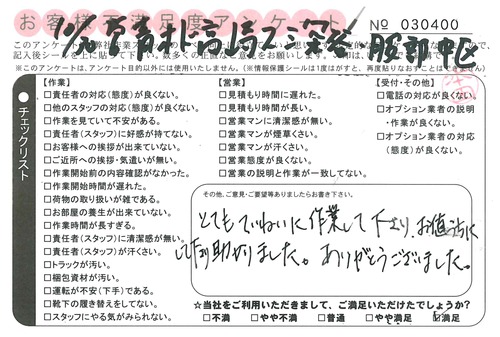 お客様不満足度アンケート
№ 030400
※このアンケートは、アンケート目的以外には使用いたしません。(※情報保護シールは1度はがすと、再度貼りなおすことはできません)
チェックリスト
【作業】
□責任者の対応(態度)が良くない。
□他のスタッフの対応(態度)が良くない。
□作業を見ていて不安がある。
□責任者(スタッフ)に好感が持てない。
□お客様への挨拶が出来ていない。
□ご近所への挨拶・気遣いが無い。
□作業開始前の内容確認がなかった。
□作業開始時間が遅れた。
□荷物の取り扱いが雑である。
□お部屋の養生が出来ていない。
□作業時間が長すぎる。
□責任者(スタッフ)に清潔感が無い。
□責任者(スタッフ)が汗くさい。
□トラックが汚い。
□梱包資材が汚い。
□運転が不安(下手)である。
□靴下の履き替えをしてない。
□スタッフにやる気がみられない。
【営業】
□見積もり時間に遅れた。
□見積もり時間が長い。
□営業マンに清潔感が無い。
□営業マンが煙草くさい。
□営業マンが汗くさい。
□営業態度が良くない。
□営業の説明と作業が一致してない。
【受付・その他】
□電話の対応が良くない。
□オプション業者の説明・作業が良くない。
□オプション業者の対応(態度)が良くない。
その他、ご意見・ご要望等ありましたらお書き下さい。
とてもていねいに作業して下さり、お値うちに
して下さり助かりました。ありがとうございました。
☆当社をご利用いただきまして、ご満足いただけたでしょうか?
□不満 □やや不満 □普通 □やや満足 ☑満足